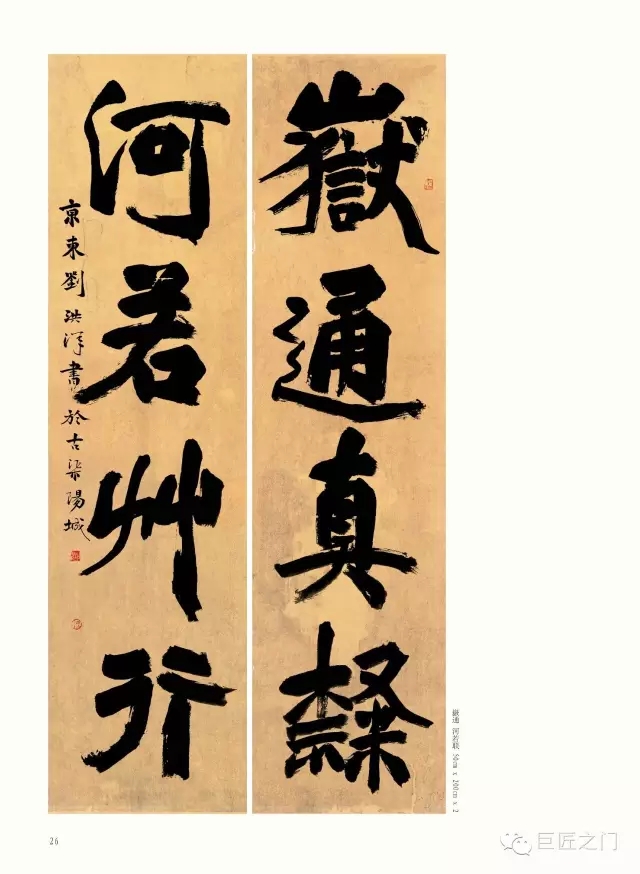 嶽通真隸
河若艸行
京東劉洪洋書於古渠陽城
嶽通 河若联 50cm x 200cm x 2
26
巨匠之门